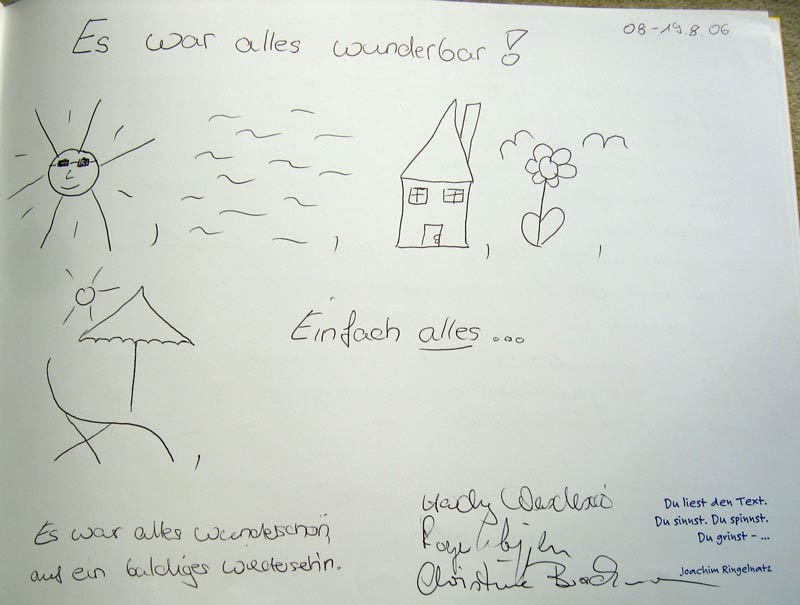 Es war alles wunderbar!
08-19.8.06
Einfach alles...
Es war alles wunderschön,
auf ein baldiges Wiedersehn.
Christine
Du liest den Text.
Du sinnst. Du spinnst.
Du grinst - ...
Joachim Ringelnatz